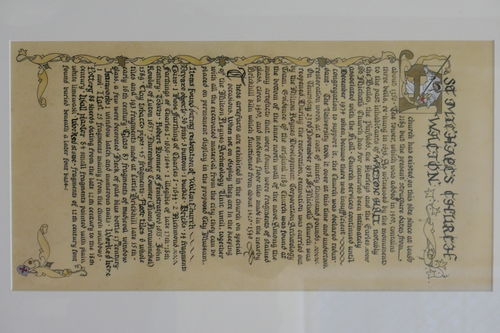 ST MICHAEL'S CHURCH
WALTON
A church has existed on this site since at least
1189 but the present structure dates from
about 1350. The tower, which was added in 1500, contains
three bells, re-hung in 1836. As witnessed by the monuments
to the past inhabitants of WALTON HALL, notably
the Beales, the Pinfolds, the Harleys and the Earles
St Michael's Church has for centuries been intimately
associated with the Hall. Church services continued until
December 1974 when, because there was insufficient
congregation to support it, the Church was declared redun-
dant. The University took it over at this time and undertook
restoration work at a cost of ninety thousand pounds.
On Thursday 23rd November 1978 St Michael's Church was
reopened. During the restoration, excavation was carried out
by the Milton Keynes Development Corporation Archaeology
Team. Evidence of the original 1189 Church was found at
the bottom of the inner north wall of the nave. Among the
many artefacts that were found were fragments of stained
glass, circa 1300, and medieval floor tiles made in the nearby
Brickhill kiln which functioned from about
These artefacts are exhibited in the church on special
occasions. When not on display they are in the keeping
of the Milton Keynes Archaeology Unit until, together
with all the excavated material from the city, they can be
placed on permanent display in the proposed City Museum.
Items found during restoration of Walton Church
Bronze objects: 36 pins: 3 buttons: 1 buckle: Bricks: 15 fragments
Coins: 1 Rose farthing of Charles I: 2 Richmond
Farthings of Charles I: 1 illegible of late 17th-18th
century: Tokens: Robert Honner of Fenistratford: John
Rowley of Luton 1657: 1 Nuremburg Counter (Hans Krauwinckel)
1589: Clay tobacco pipes: 45 fragments: Floor tiles: 6 whole
tiles and 193 fragments made at Little Brickhill late 15th -
early 16th century: Glass: 83 fragments of medieval window
glass, a few were decorated: Neck of pale blue bottle
Ironwork: 1 window latch and numerous nails: Worked bone:
1 awl: Lead: 25 fragments mainly from the church windows:
Pottery: 86 sherds dating from the late 12th century to the 18th
century: Wall plaster: 84 small fragments painted with plain
white limewash: Worked stone: fragments of 12th century font
found buried beneath a later font base: